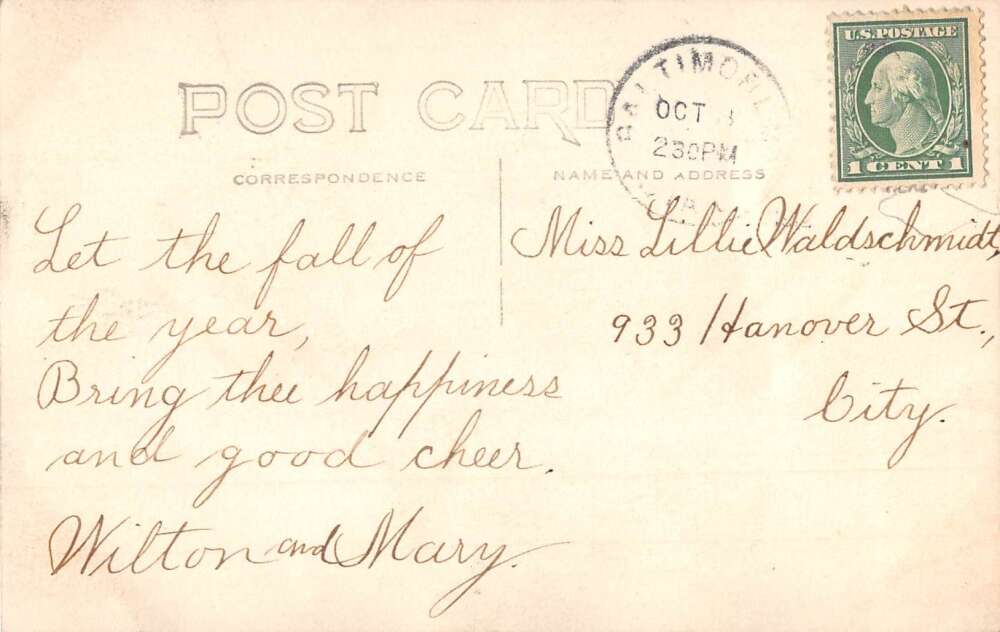 POST CARD
CORRESPONDENCE
NAME AND ADDRESS
BALTIMORE
OCT
2 30 PM
U.S. POSTAGE
1 CENT 1
Let the fall of
the year,
Bring thee happiness
and good cheer.
Wilton and Mary.
Miss Lillie Waldschmidt,
933 Hanover St.,
City.